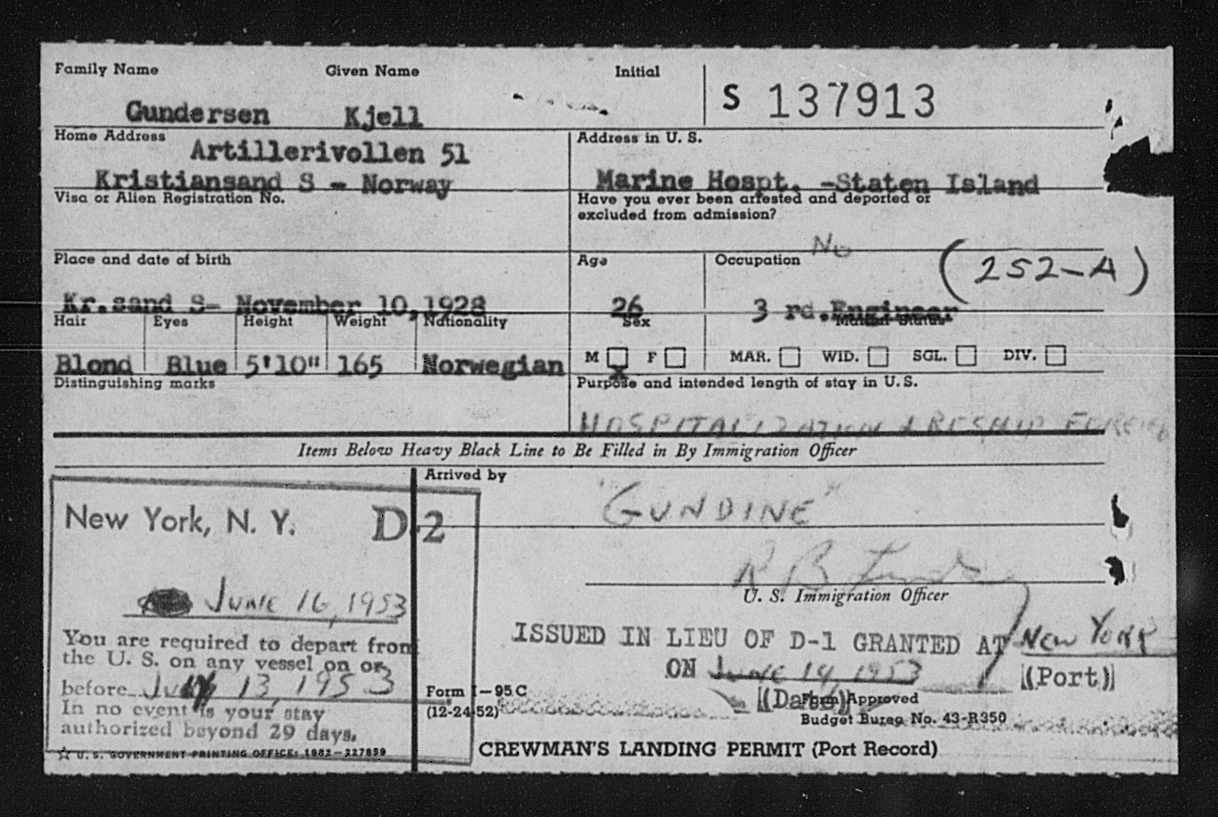 Family Name Given Name Initial
S 137913
Gundersen Kjell
Home Address
Artillerivollen 51
Kristiansand S - Norway
Address in U. S.
Marine Hospt. -Staten Island
Visa or Alien Registration No.
Have you ever been arrested and deported or
excluded from admission?
No
Place and date of birth
Kr.sand S- November 10,1928
Age
26
Occupation
(252-A)
3 rd.Engineer
Hair Eyes Height Weight Nationality
Blond Blue 5'10" 165 Norwegian
Sex
M F
X
Marital Status
MAR. WID. SGL. DIV.
Distinguishing marks
Purpose and intended length of stay in U. S.
HOSPITALIZATION & RESHIP FOREIGN
Items Below Heavy Black Line to Be Filled in By Immigration Officer
New York, N. Y. D-2
JUNE 16, 1953
You are required to depart from
the U. S. on any vessel on or
before July 13, 1953
In no event is your stay
authorized beyond 29 days.
☆ U. S. GOVERNMENT PRINTING OFFICE: 1952—227859
Arrived by
"GUNDINE"
R B
U. S. Immigration Officer
ISSUED IN LIEU OF D-1 GRANTED AT NEW YORK
ON JUNE 14, 1953 (Port)
(Date)
Form I-95 C
(12-24-52)
Form Approved
Budget Bureau No. 43-R350
CREWMAN'S LANDING PERMIT (Port Record)